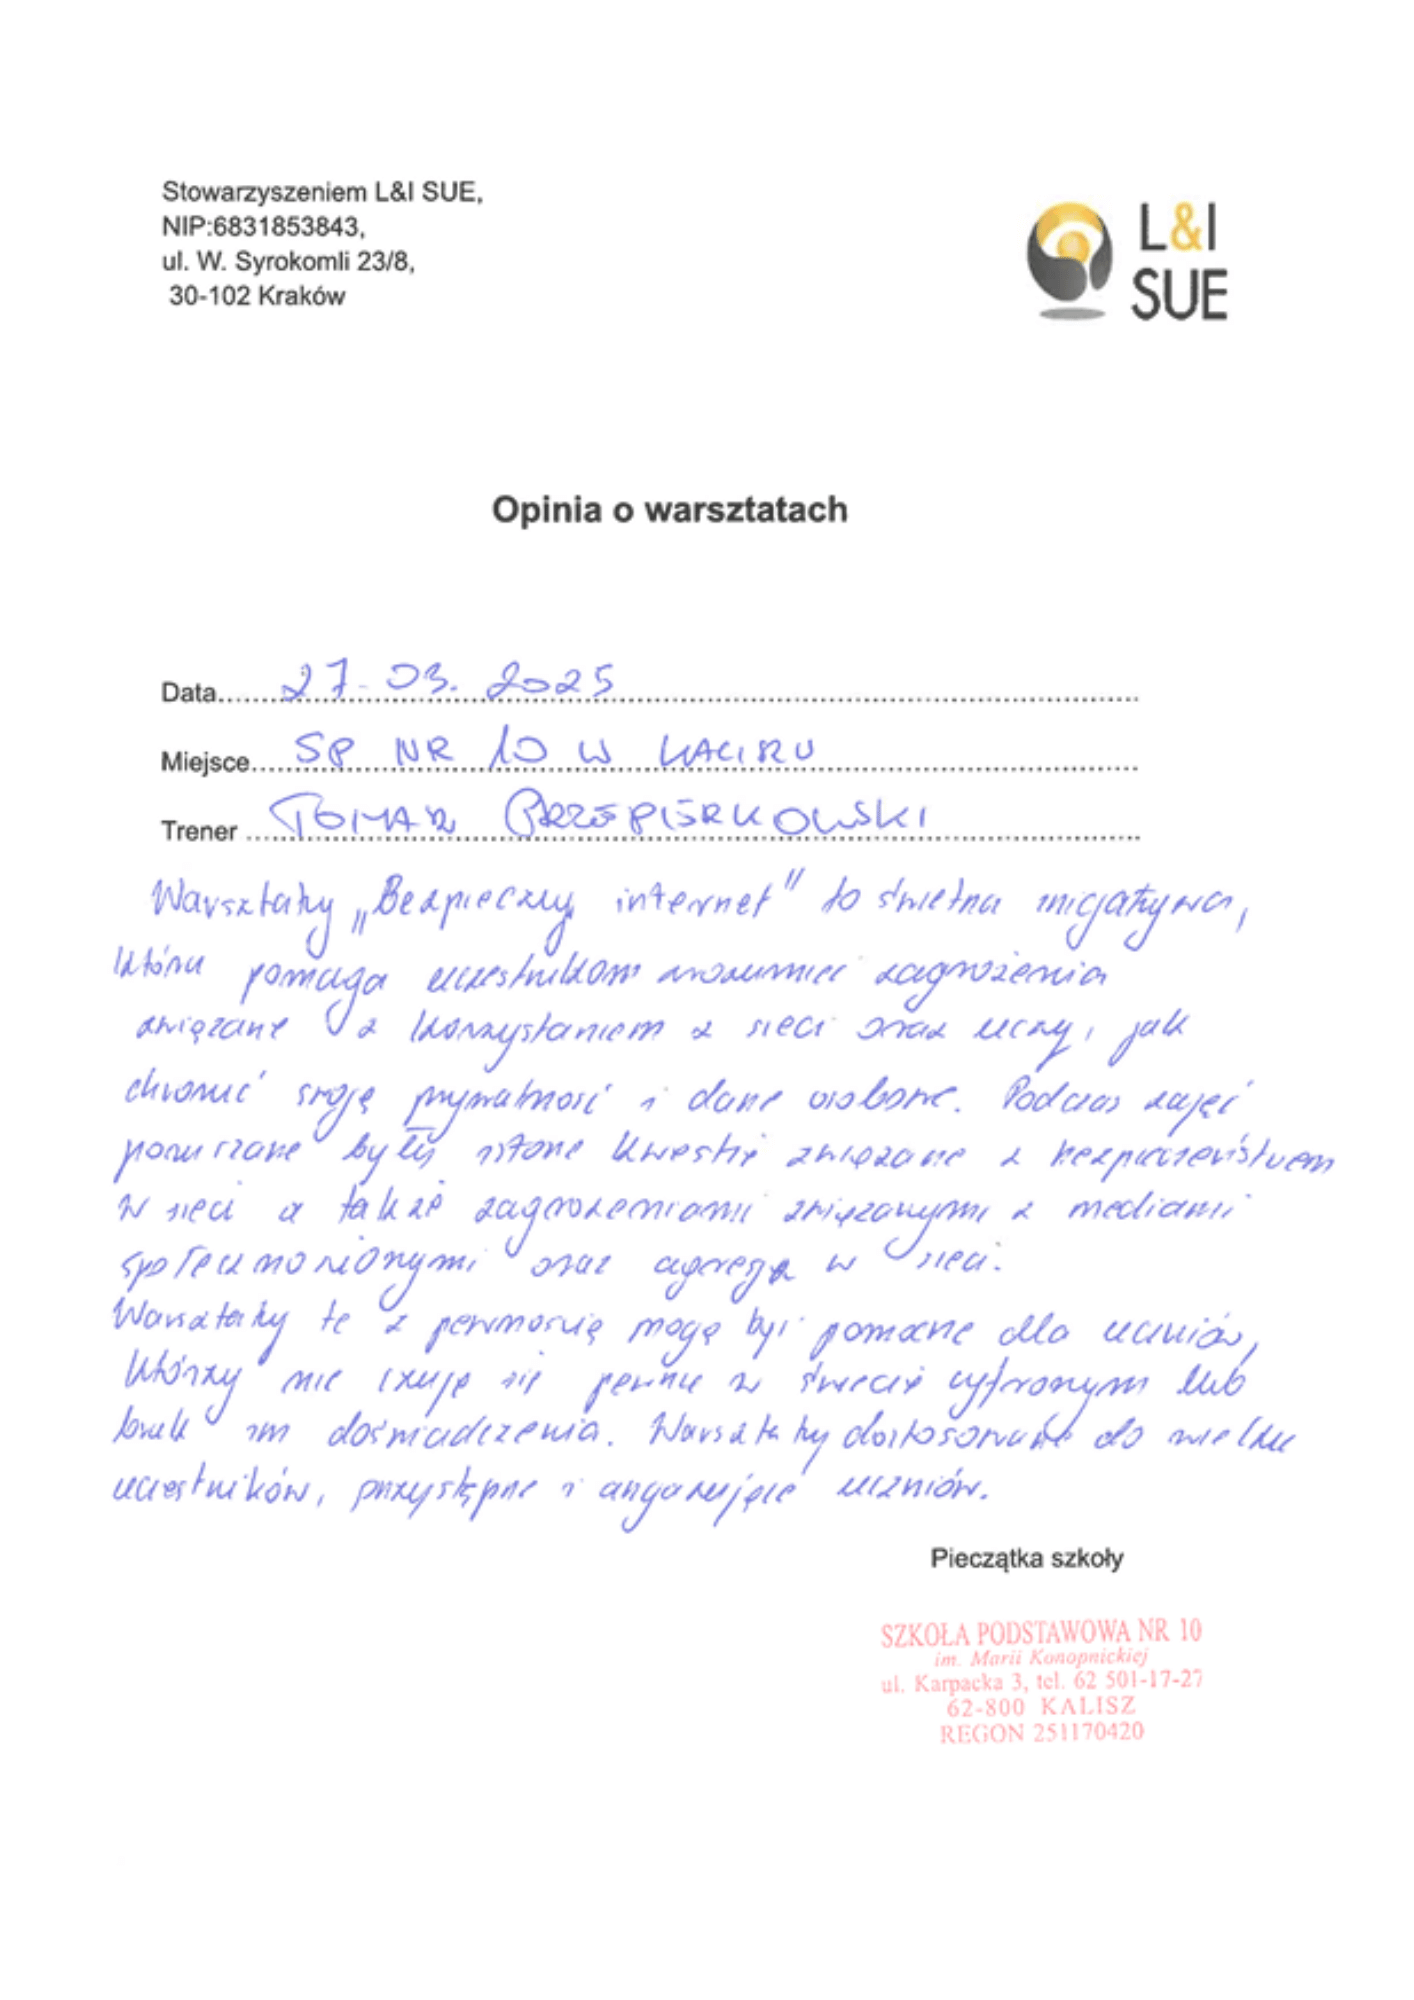 Stowarzyszeniem L&I SUE,
NIP:6831853843,
ul. W. Syrokomli 23/8,
30-102 Kraków
L&I
SUE
Opinia o warsztatach
Data 27.03.2025
Miejsce SP NR 10 W KALISZU
Trener TOMASZ PRZEPIÓRKOWSKI
Warsztaty „Bezpieczny internet" to świetna inicjatywa,
która pomaga uczestnikom zrozumieć zagrożenia
związane z korzystaniem z sieci oraz uczy, jak
chronić swoją prywatność i dane osobowe. Podczas zajęć
poruszane były istotne kwestie związane z bezpieczeństwem
w sieci a także zagrożeniami związanymi z mediami
społecznościowymi oraz agresją w sieci.
Warsztaty te z pewnością mogą być pomocne dla uczniów,
którzy nie czują się pewnie w świecie cyfrowym lub
brak im doświadczenia. Warsztaty dostosowane do wieku
uczestników, przystępne i angażujące uczniów.
Pieczątka szkoły
SZKOŁA PODSTAWOWA NR 10
im. Marii Konopnickiej
ul. Karpacka 3, tel. 62 501-17-27
62-800 KALISZ
REGON 251170420